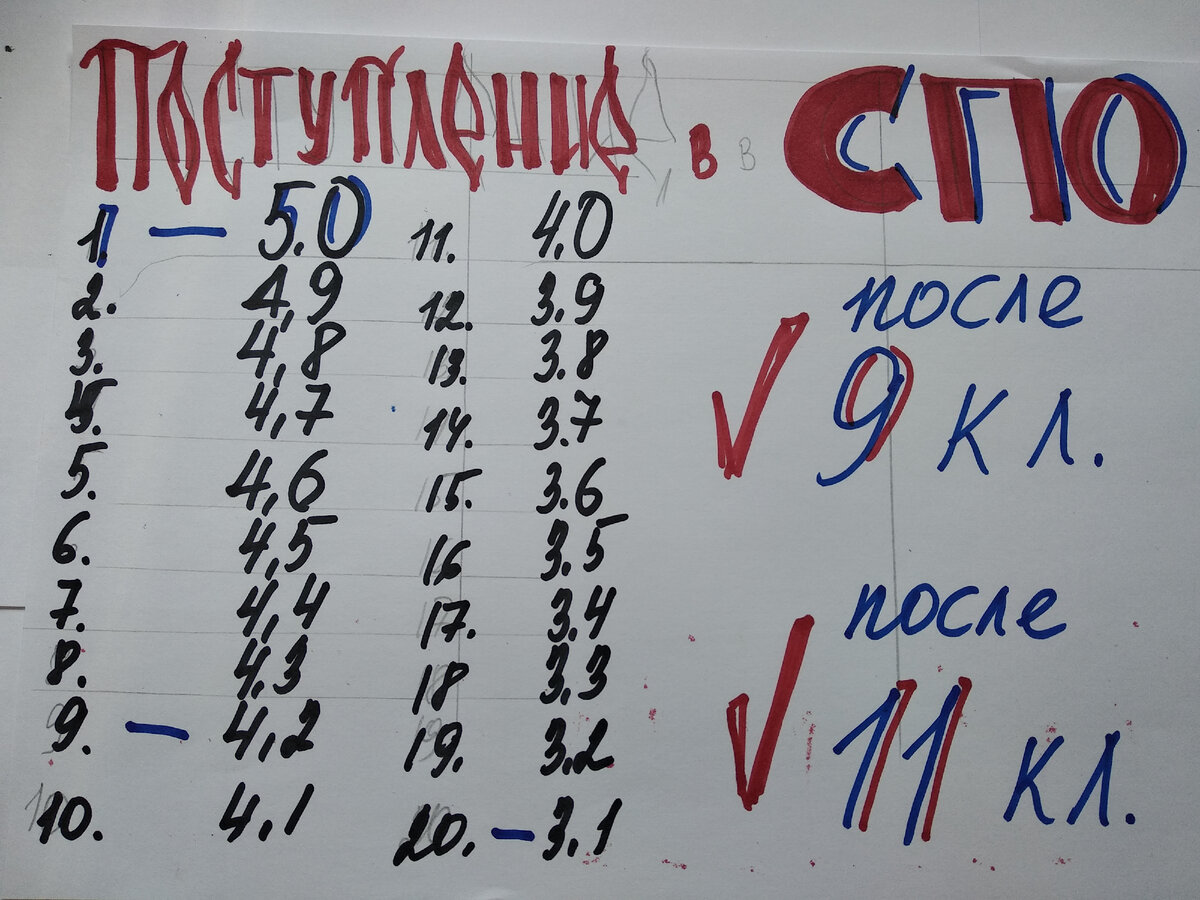 Поступление в СПО
1. — 5.0
2. 4,9
3. 4,8
5. 4,7
5. 4,6
6. 4,5
7. 4,4
8. 4.3
9. — 4,2
10. 4.1
11. 4.0
12. 3.9
13. 3.8
14. 3.7
15. 3.6
16 3.5
17. 3.4
18 3.3
19. 3.2
20. — 3.1
после
9 кл.
после
11 кл.